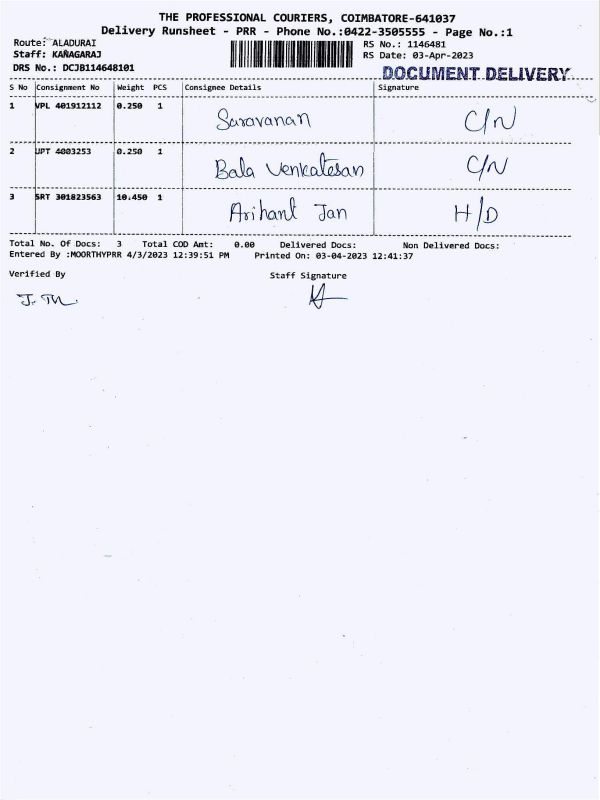 THE PROFESSIONAL COURIERS, COIMBATORE-641037
Delivery Runsheet - PRR - Phone No.:0422-3505555 - Page No.:1
Route: ALADURAI RS No.: 1146481
Staff: KANAGARAJ RS Date: 03-Apr-2023
DRS No.: DCJB114648101 DOCUMENT DELIVERY
S No Consignment No Weight PCS Consignee Details Signature
1 VPL 401912112 0.250 1 Saravanan C/N
2 JPT 4003253 0.250 1 Bala Venkatesan C/N
3 SRT 301823563 10.450 1 Arihant Jan H/D
Total No. Of Docs: 3 Total COD Amt: 0.00 Delivered Docs: Non Delivered Docs:
Entered By :MOORTHYPRR 4/3/2023 12:39:51 PM Printed On: 03-04-2023 12:41:37
Verified By Staff Signature